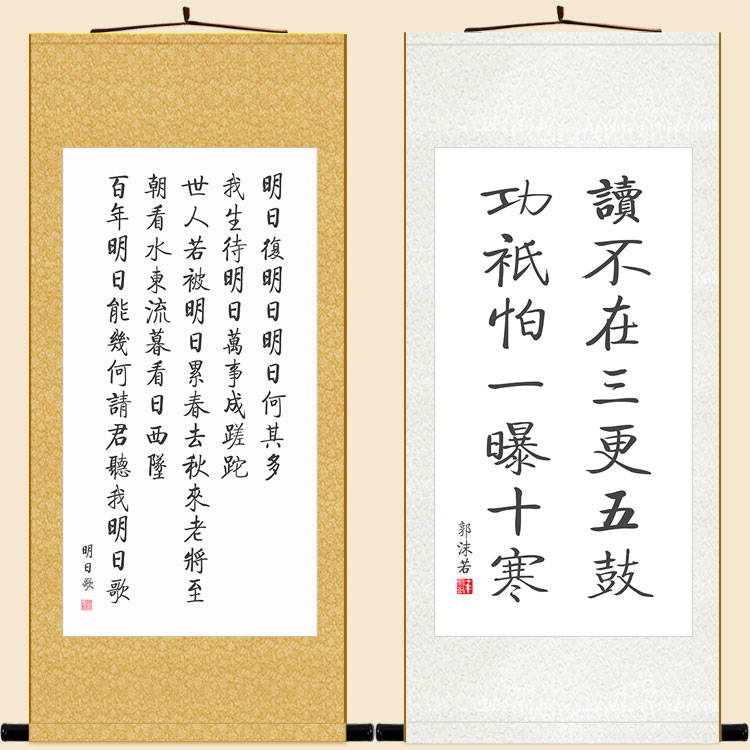 明日復明日明日何其多
我生待明日萬事成蹉跎
世人若被明日累春去秋來老將至
朝看水東流暮看日西墜
百年明日能幾何請君聽我明日歌
明日歌
讀不在三更五鼓
功祇怕一曝十寒
郭沫若